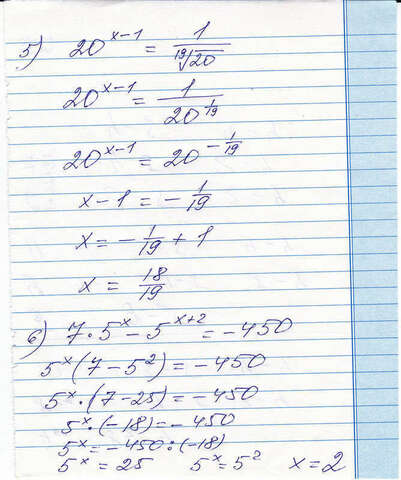 5) 20^(x-1) = 1/¹⁹√20
20^(x-1) = 1/20^(1/19)
20^(x-1) = 20^(-1/19)
x-1 = -1/19
x = -1/19 + 1
x = 18/19
6) 7·5^x - 5^(x+2) = -450
5^x(7-5²) = -450
5^x·(7-25) = -450
5^x·(-18) = -450
5^x = -450:(-18)
5^x = 25 5^x = 5² x = 2